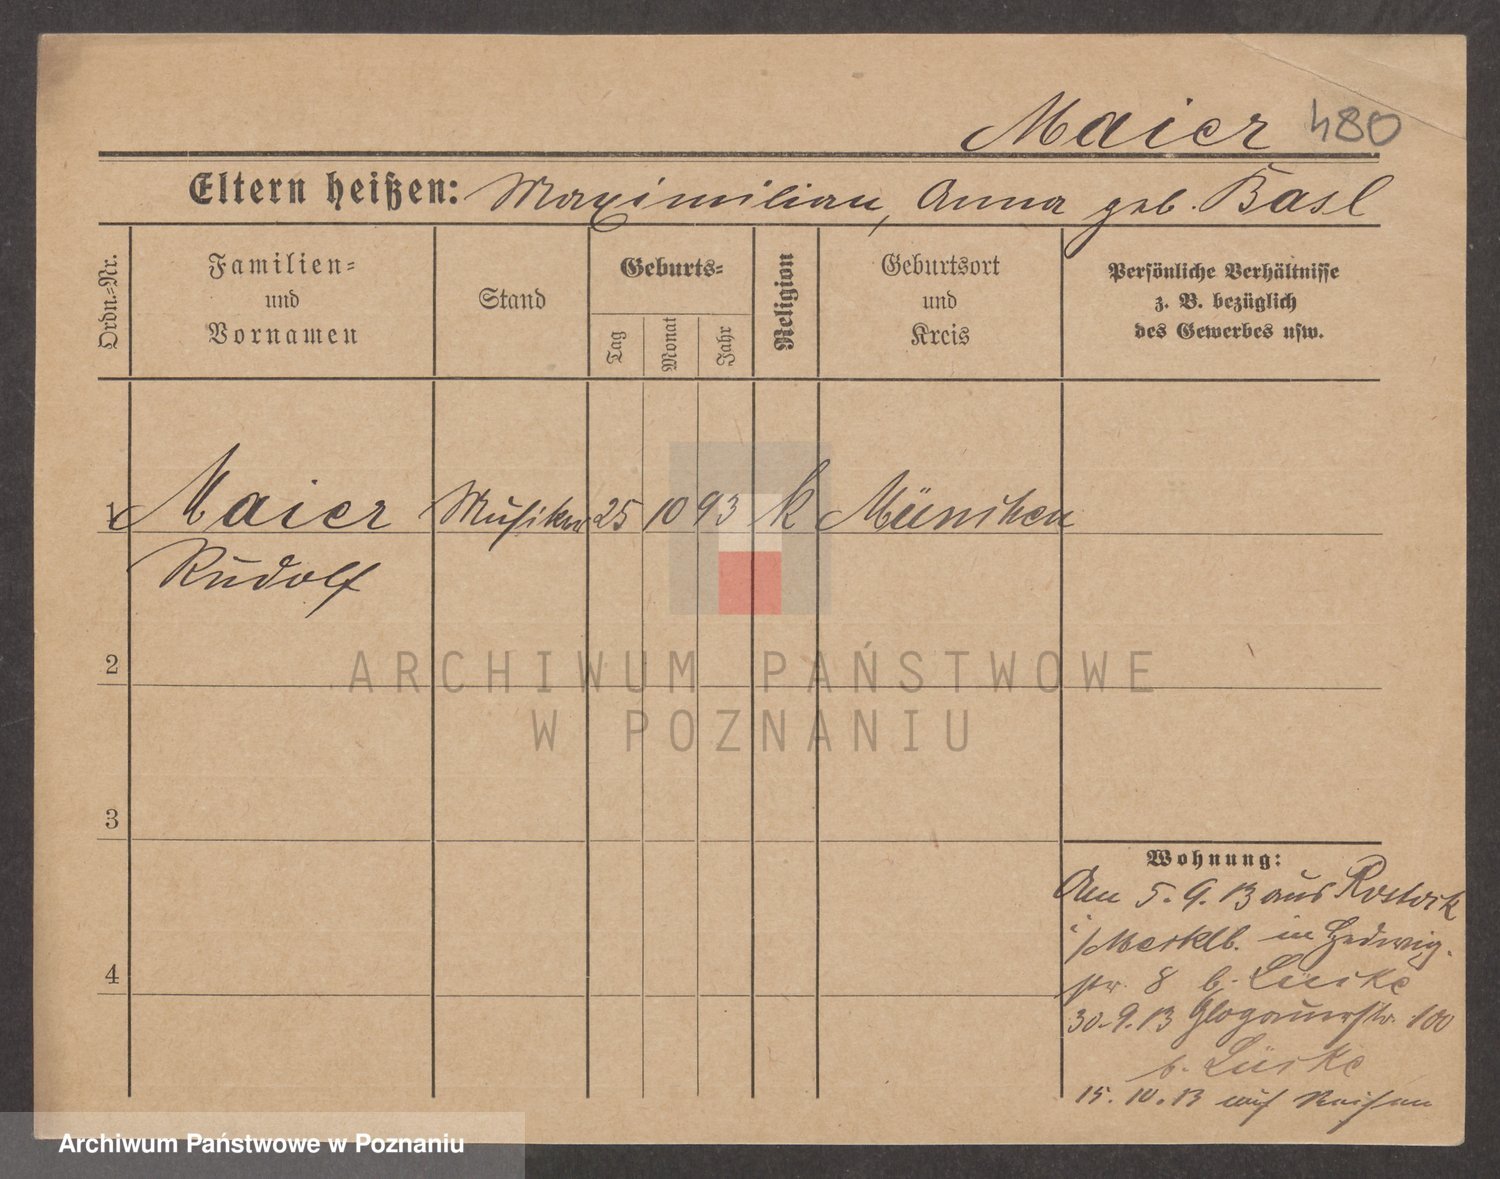 Maier 480
Eltern heißen: Maximilian, Anna geb. Basl
Ordn.=Nr.
Familien=
und
Vornamen
Stand
Geburts=
Tag
Monat
Jahr
Religion
Geburtsort
und
Kreis
Persönliche Verhältnisse
z. B. bezüglich
des Gewerbes usw.
1 Maier Musiker 25 10 93 k München
Rudolf
2
3
4
Wohnung:
Am 5.9.13 aus Rostock
i/Mecklb. in Hedwig-
str. 8 b. Lüske
30.9.13 Glogauerstr. 100
b. Lüske
15.10.13 auf Reisen
ARCHIWUM PAŃSTWOWE
W POZNANIU
Archiwum Państwowe w Poznaniu